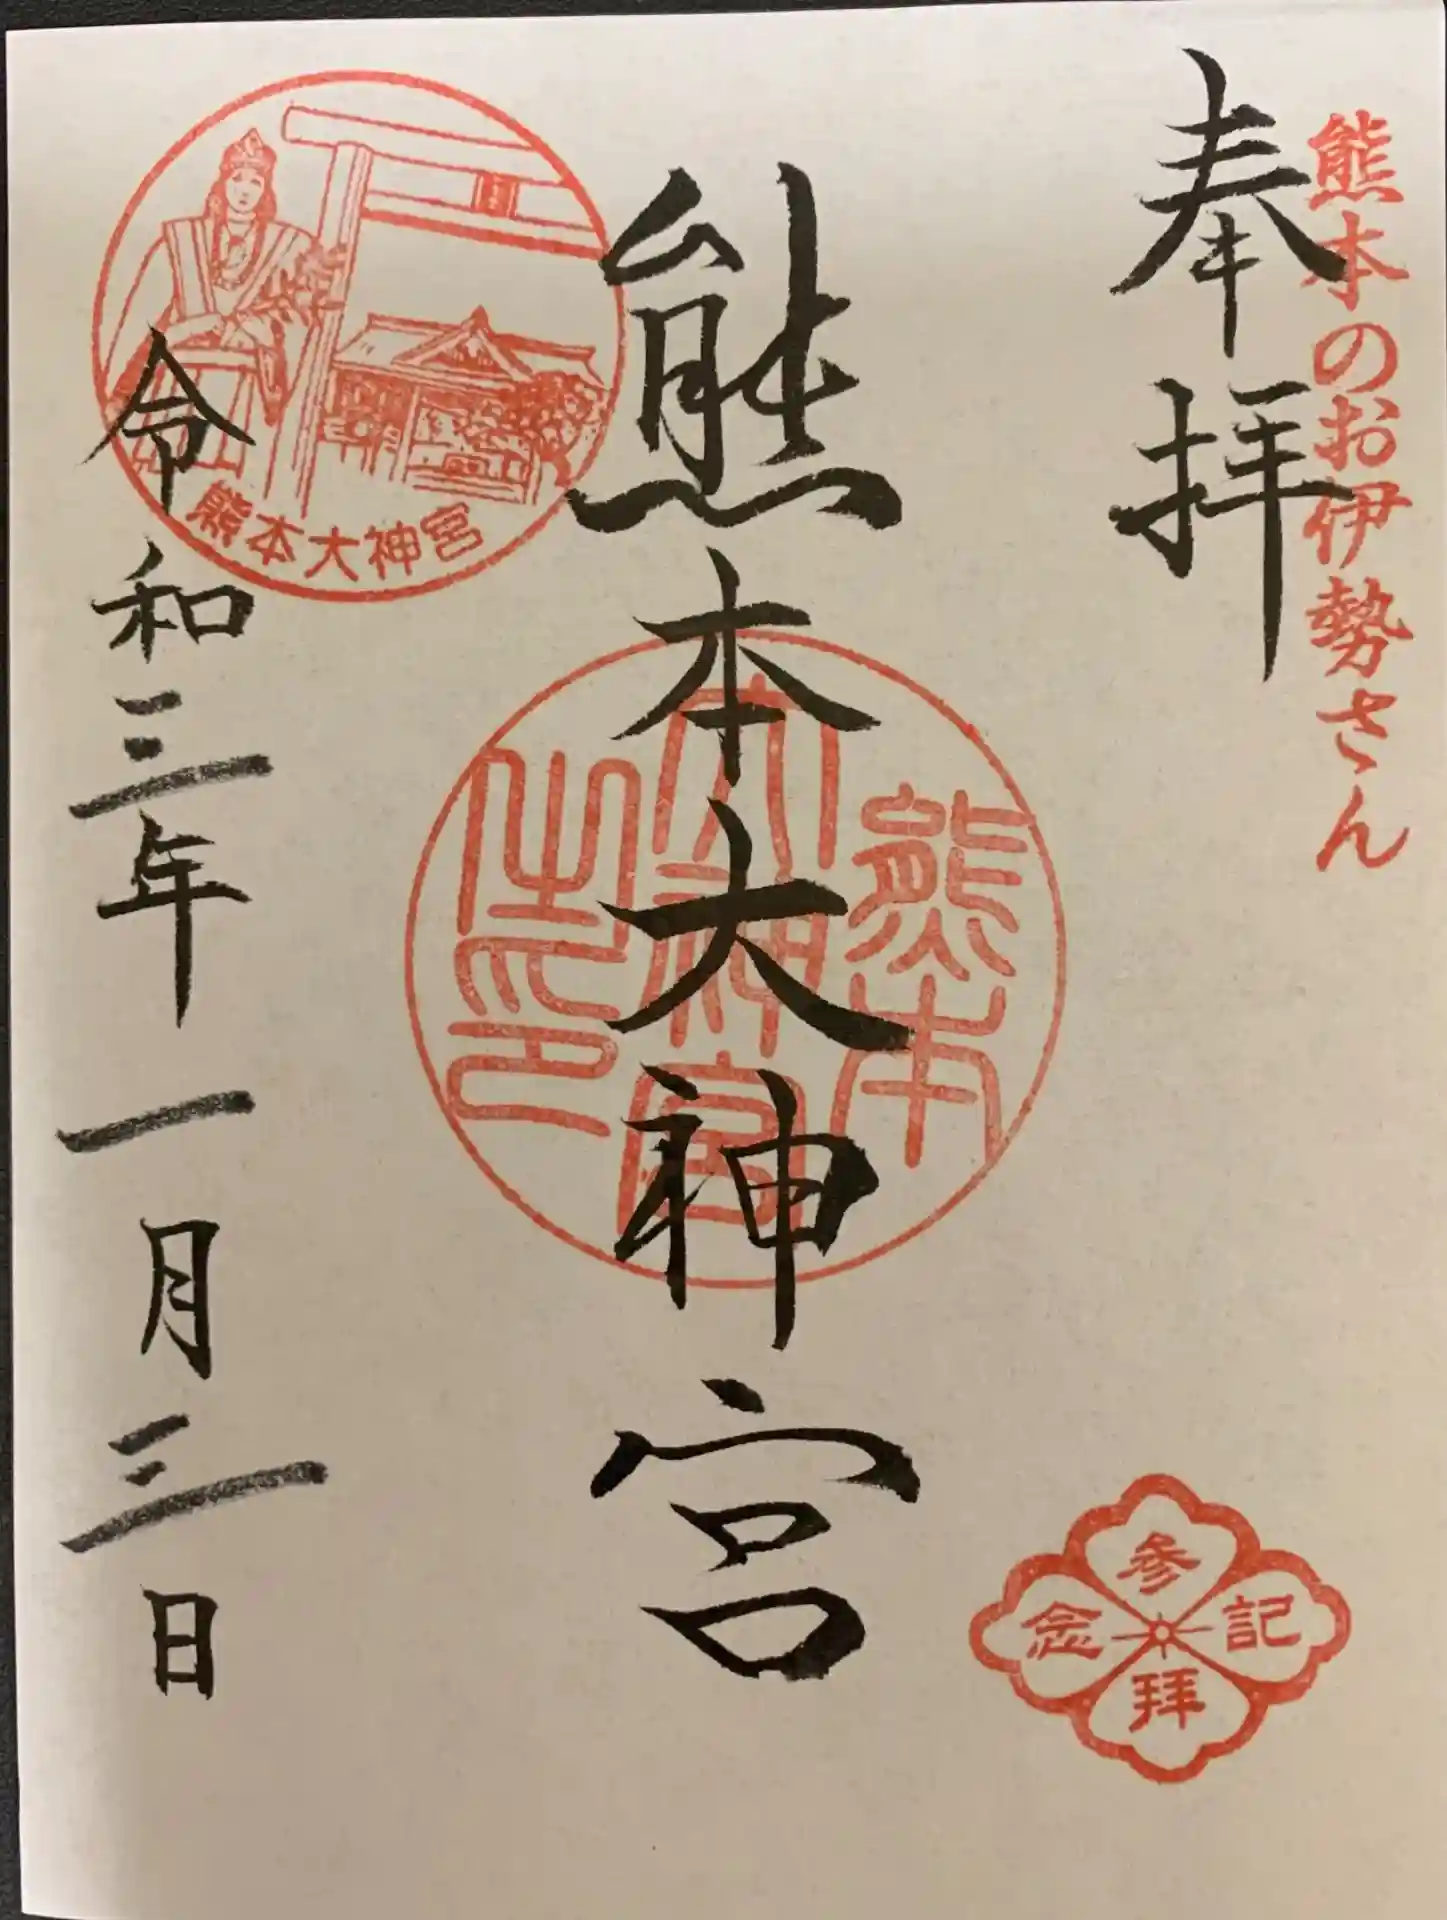 熊本のお伊勢さん
奉拝
熊本大神宮
熊本
大神宮
之印
熊本大神宮
令和三年一月三日
参拝
記念